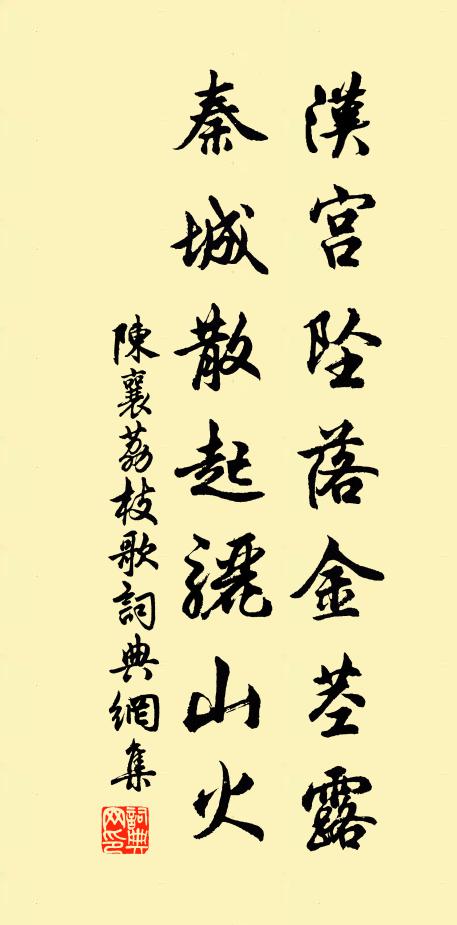 漢宮墜落金莖露
秦城散起驪山火
陳襄荔枝歌詞典網集
詞典網印